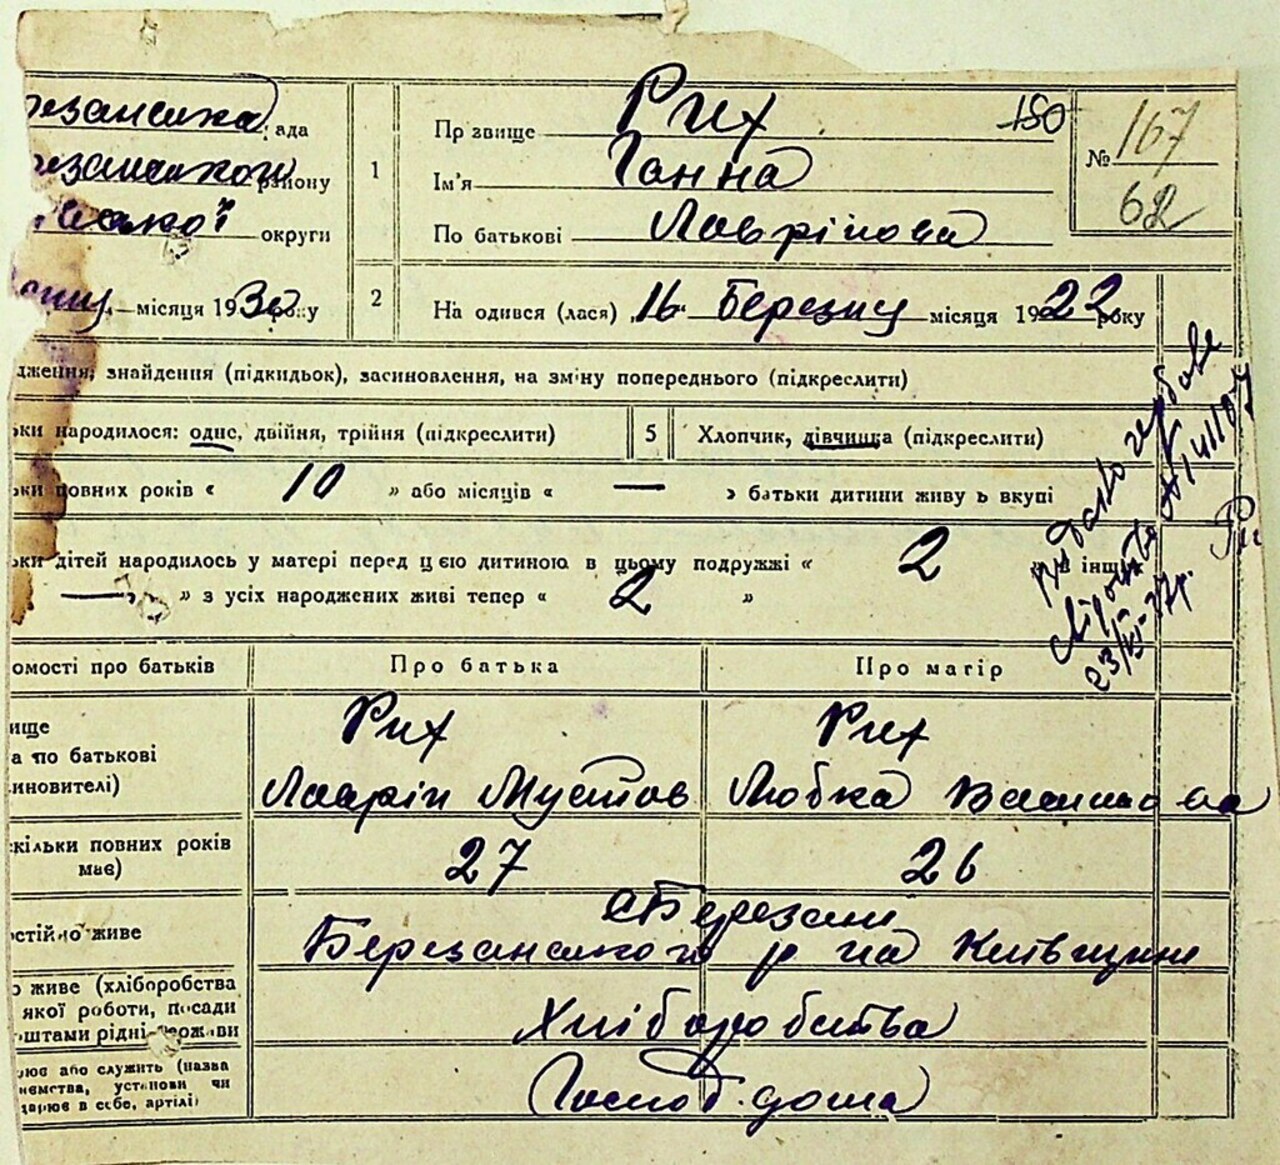 резанська рада
резанського району
ської округи
місяця 1930 року
1
Прізвище Рих
Ім'я Ганна
По батькові Лаврінова
150
№ 167
62
2
Народився (лася) „16“ Березня місяця 1922 року
дження, знайдення (підкидьок), засиновлення, на зміну попереднього (підкреслити)
ьки народилося: одне, двійня, трійня (підкреслити)
5
Хлопчик, дівчинка (підкреслити)
ьки повних років « 10 » або місяців « — » батьки дитини живуть вкупі
ьки дітей народилось у матері перед цією дитиною в цьому подружжі « 2 в інших
— » з усіх народжених живі тепер « 2 »
Видано гербове
свідоцтво № 141107
23/XI-37р.
омості про батьків
Про батька
Про матір
ище
а по батькові
иновителі)
Рих
Лаврін Мустов
Рих
Любка Василова
скільки повних років
має)
27
26
остійно живе
с Березані
Березанського р на Київщині
о живе (хліборобства
якої роботи, посади
оштами рідні держави
Хліборобства
рює або служить (назва
иємства, установи чи
дарює в себе, артілі)
Господ. дома